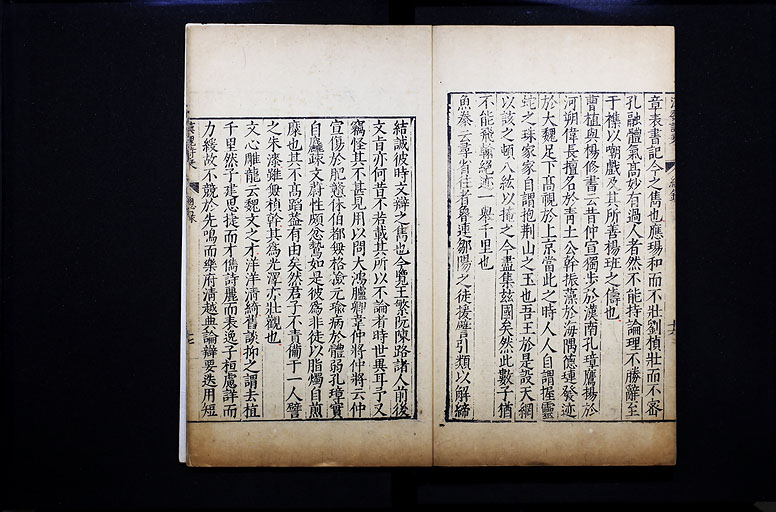 章表書記今之雋也應瑒和而不壯劉楨壯而不密
孔融體氣高妙有過人者然不能持論理不勝辭至
于樵以嘲戲及其所善楊班之儔也
曹植與楊修書云昔仲宣獨步於漢南孔璋鷹揚於
河朔偉長擅名於青土公幹振藻於海隅德璉發迹
於大魏足下高視於上京當此之時人人自謂握靈
蛇之珠家家自謂抱荆山之玉也吾王於是設天網
以該之頓八紘以掩之今盡集玆國矣然此數子猶
不能飛翰絕迹一舉千里也
魚豢云尋省往者魯連鄒陽之徒援譬引類以解締
結誠彼時文辯之雋也今覽王繁阮陳路諸人前後
文旨亦何昔不若哉其所以不論者時世異耳予又
竊怪其不甚見用以問大鴻臚卿韋仲將仲將云仲
宣傷於肥戇休伯都無格檢元瑜病於體弱孔璋實
自麤疎文蔚性頗忿鷙如是彼爲非徒以脂燭自煎
糜也其不高蹈葢有由矣然君子不責備于一人譬
之朱漆雖無楨幹其爲光澤亦壯觀也
文心雕龍云魏文之才洋洋清綺舊談抑之謂去植
千里然子建思捷而才儁詩麗而表逸子桓慮詳而
力緩故不競於先鳴而樂府清越典論辯要迭用短